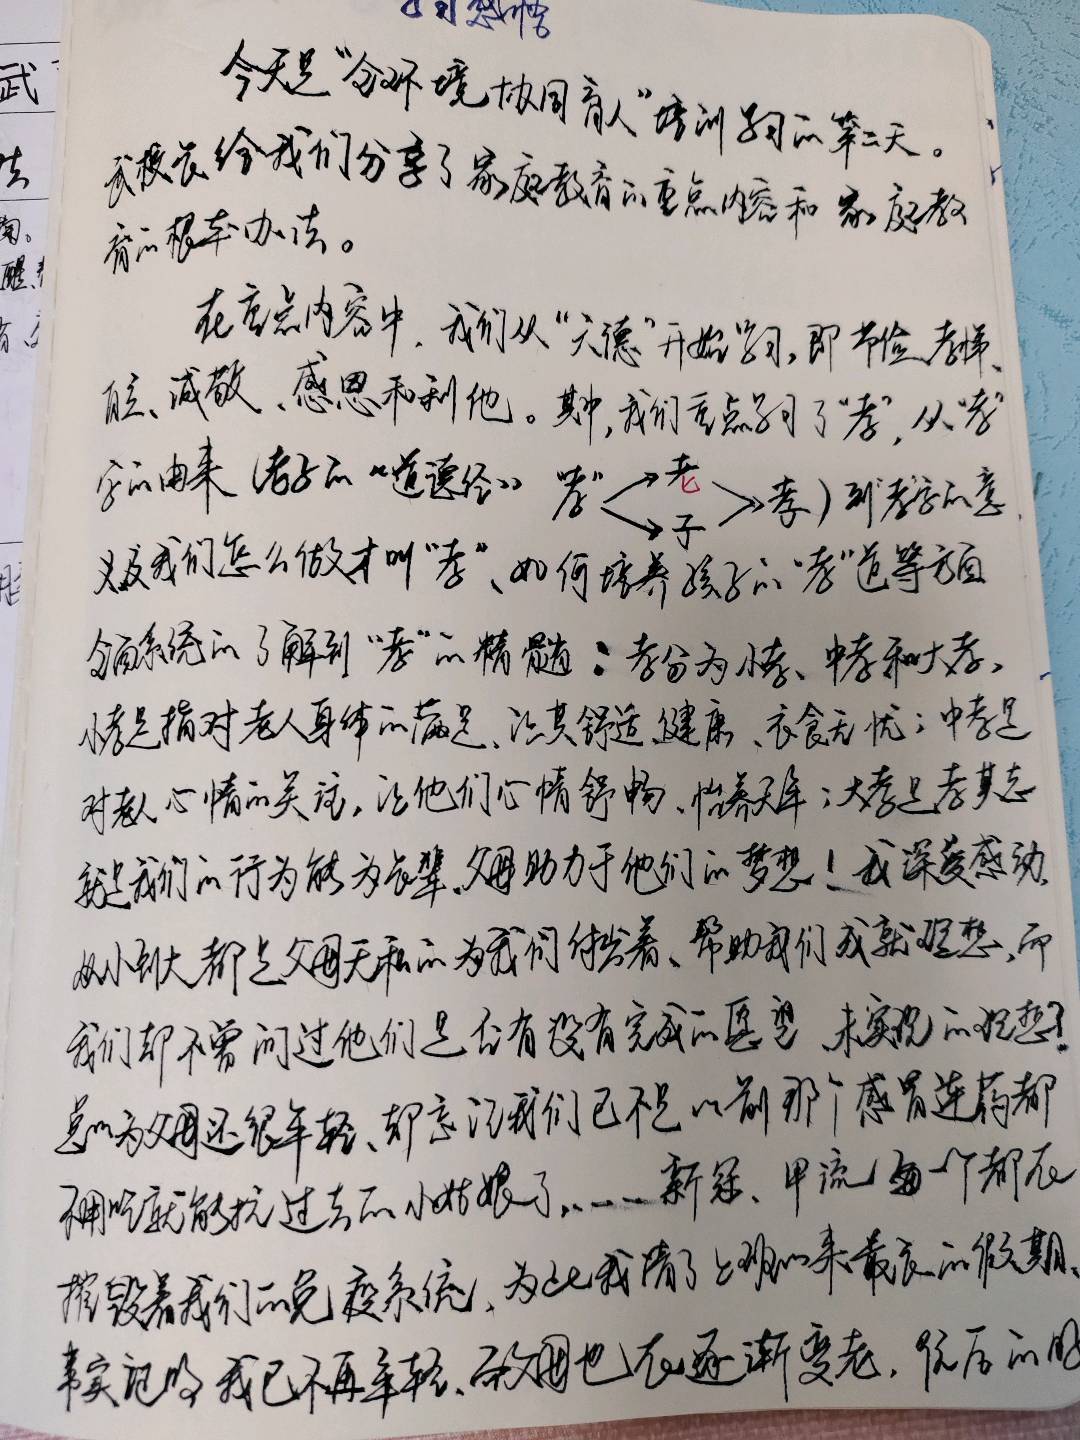 习感悟
今天是“全环境协同育人”培训学习的第二天。
武校长给我们分享了家庭教育的重点内容和家庭教
育的根本办法。
在重点内容中，我们从“六德”开始学习，即节俭、孝悌、
自立、诚敬、感恩和利他。其中，我们重点学习了“孝”，从“孝”
字的由来（老子的《道德经》“孝” 老 子 孝）到“孝”字的意
义及我们怎么做才叫“孝”、如何培养孩子的“孝”道等方面
全面系统的了解到“孝”的精髓：孝分为小孝、中孝和大孝。
小孝是指对老人身体的满足、让其舒适、健康、衣食无忧；中孝是
对老人心情的关注，让他们心情舒畅、怡养天年；大孝是孝其志
就是我们的行为能为长辈、父母助力于他们的梦想！我深受感动，
从小到大都是父母无私的为我们付出着、帮助我们成就理想，而
我们却不曾问过他们是否有没有完成的愿望、未实现的理想？
总以为父母还很年轻、却忘记我们已不是以前那个感冒连药都
不用吃就能抗过去的小姑娘了……新冠、甲流每一个都在
摧毁着我们的免疫系统，为此我请了上班以来最长的假期、
事实证明我已不再年轻、而父母也在逐渐变老，